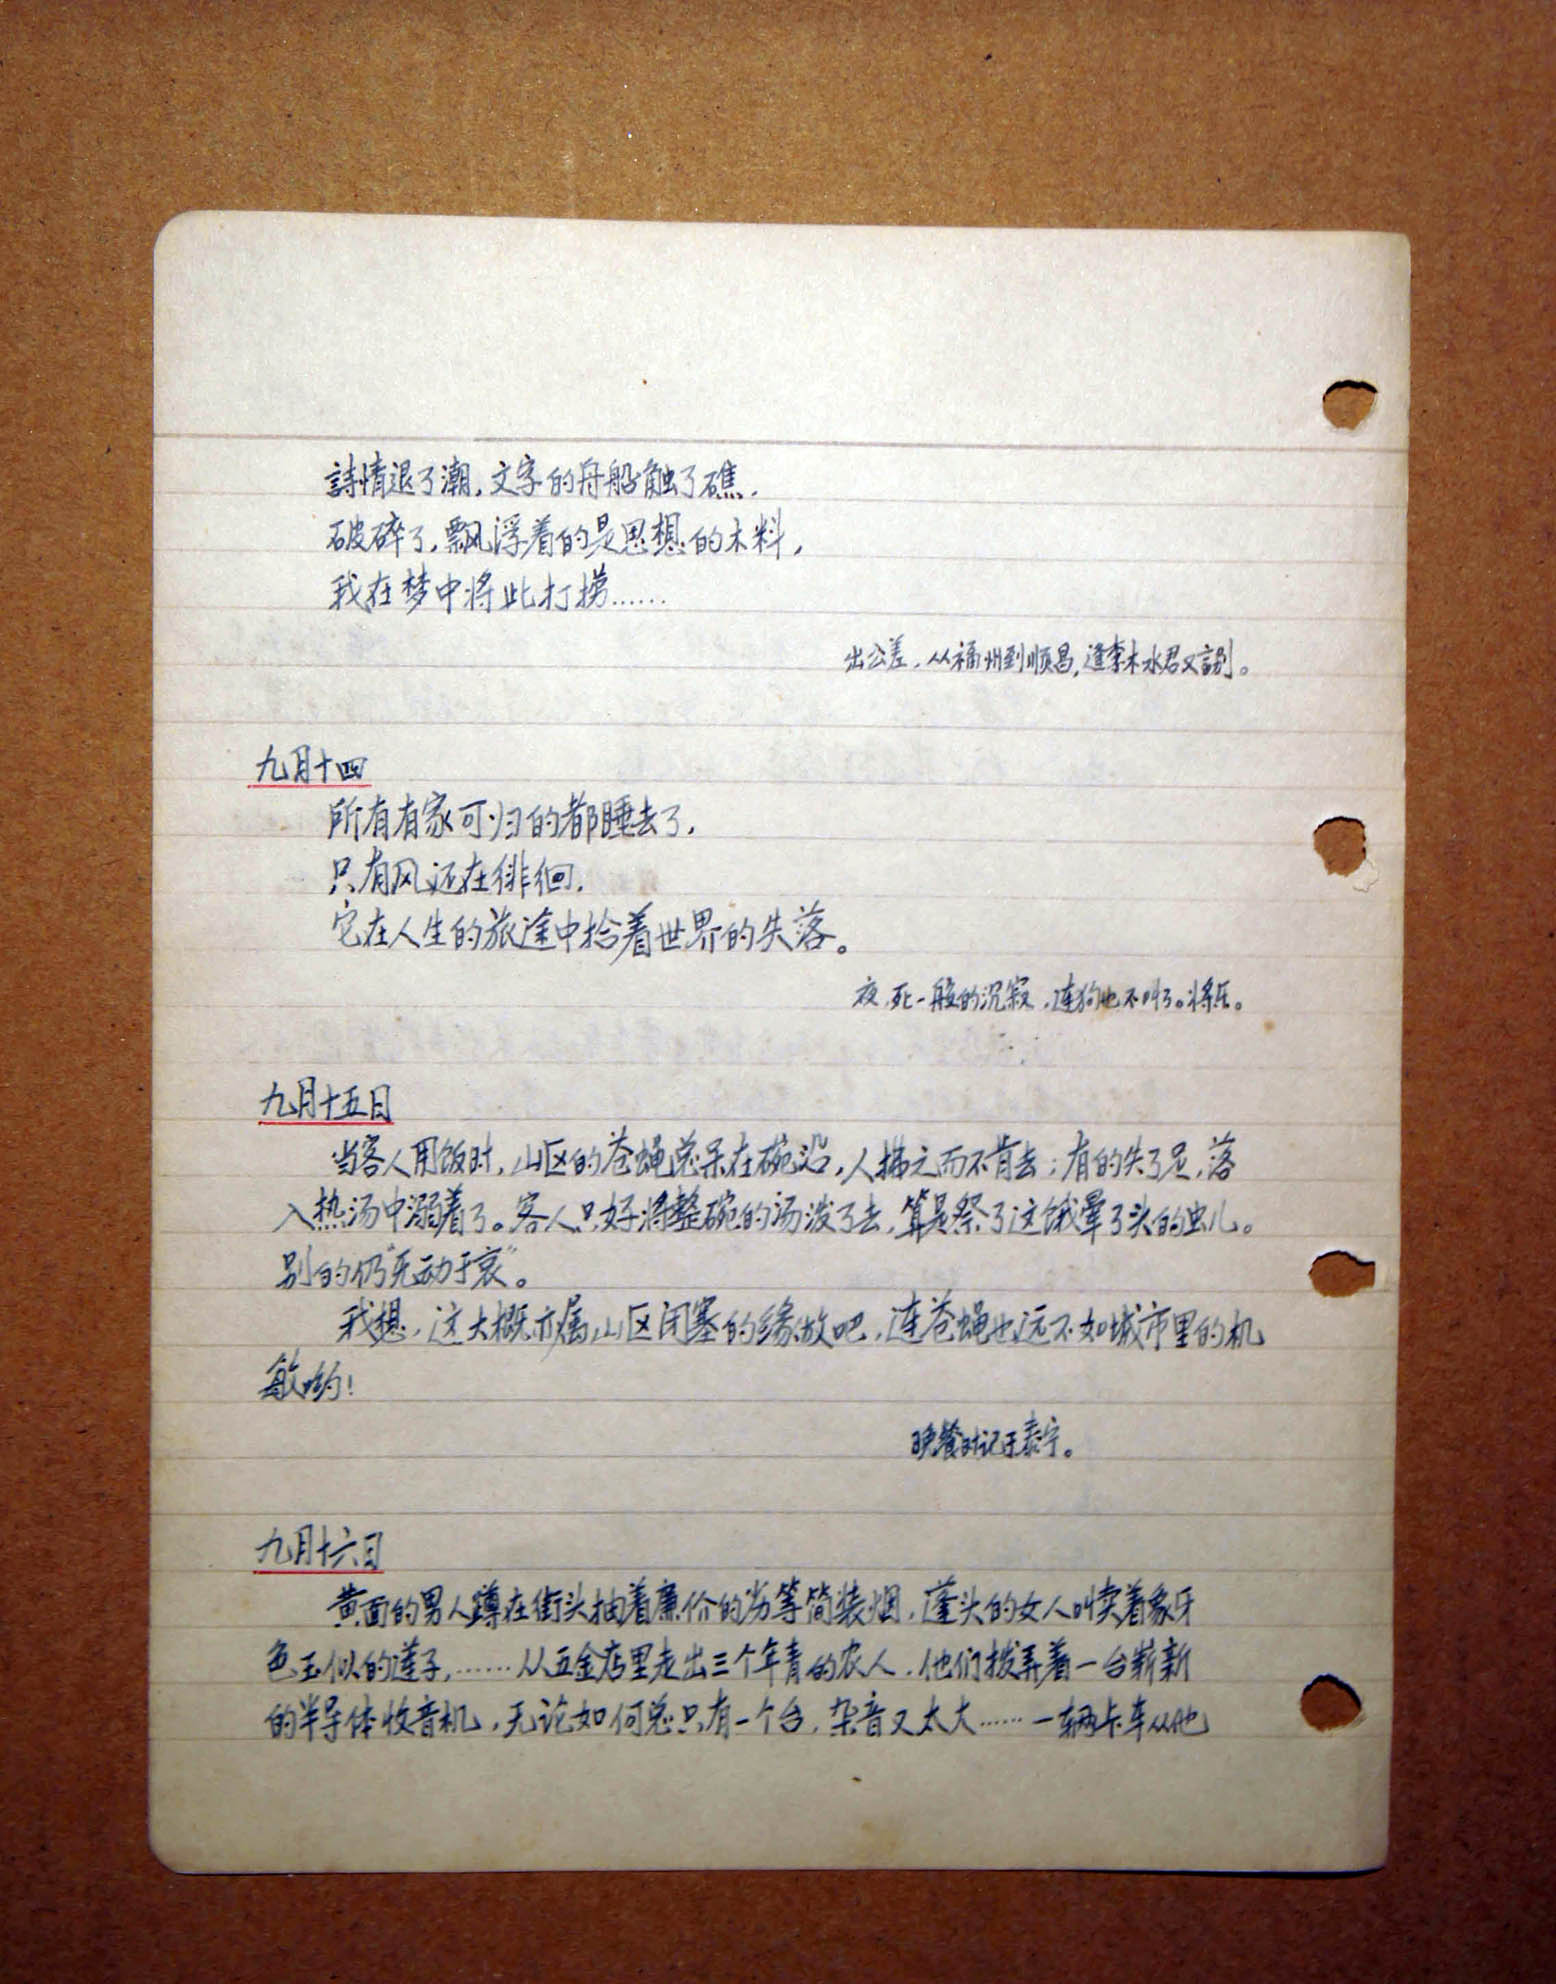 詩情退了潮，文字的舟船触了礁．
破碎了，飘浮着的是思想的木料，
我在梦中将此打捞……
出公差，从福州到顺昌，逢李木水君又話别。
九月十四
所有有家可归的都睡去了，
只有风还在徘徊，
它在人生的旅途中拾着世界的失落。
夜，死一般的沉寂，连狗也不叫了。将乐。
九月十五日
当客人用饭时，山区的苍蝇总呆在碗沿，人拂之而不肯去；有的失了足，落
入热汤中溺着了。客人只好将整碗的汤泼了去，算是祭了这饿晕了头的虫儿。
别的仍“无动于衷”。
我想，这大概亦属山区闭塞的缘故吧，连苍蝇也远不如城市里的机
敏哟！
晚餐时记于泰宁。
九月十六日
黄面的男人蹲在街头抽着廉价的劣等简装烟，蓬头的女人叫卖着象牙
色玉似的莲子，……从五金店里走出三个年青的农人，他们拨弄着一台崭新
的半导体收音机，无论如何总只有一个台，杂音又太大……一辆卡车从他